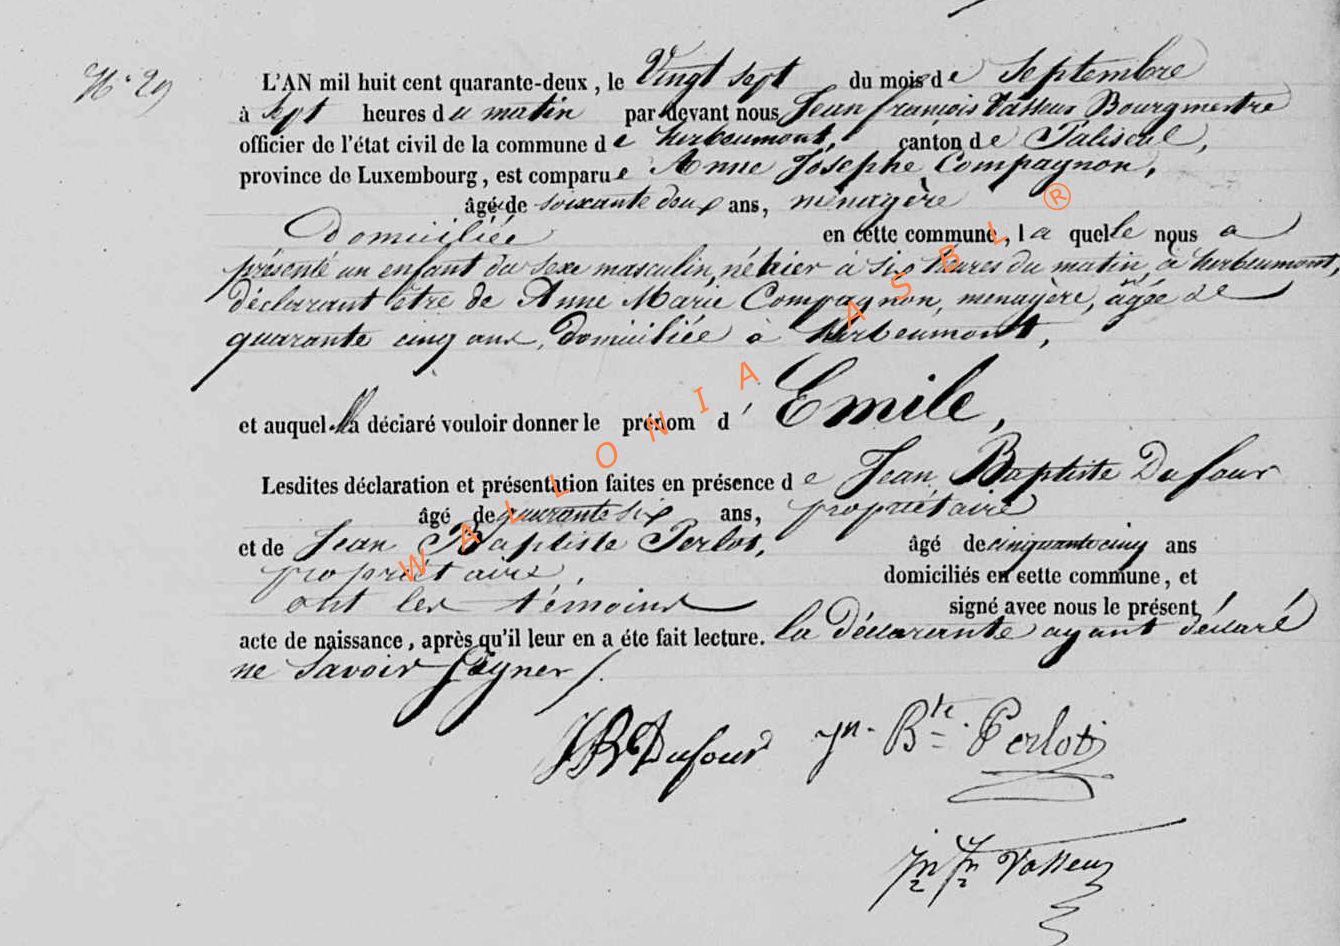 N° 29
L'AN mil huit cent quarante-deux, le Vingt sept du mois de Septembre
à sept heures du matin par devant nous Jean francois Vasseur Bourgmestre
officier de l'état civil de la commune de herbeumont, canton de Paliseul,
province de Luxembourg, est comparue Anne Josephe Compagnon,
âgée de soixante deux ans, ménagère
Domiciliée en cette commune, la quelle nous a
présenté un enfant du sexe masculin, né hier à six heures du matin, à herbeumont,
déclarant être de Anne Marie Compagnon, menagère, âgée de
quarante cinq ans, Domiciliée à herbeumont,
et auquel a déclaré vouloir donner le prénom d' Emile,
Lesdites déclaration et présentation faites en présence de Jean Baptiste Dufour
âgé de quarante six ans, propriétaire
et de Jean Baptiste Perlot, âgé de cinquante cinq ans
propriétaire, domiciliés en cette commune, et
ont les témoins signé avec nous le présent
acte de naissance, après qu'il leur en a éte fait lecture. la déclarante ayant déclaré
ne savoir signer /.
JB Dufour Jn. Bte Perlot
Jn Fn Vasseur
WALLONIA ASBL ®